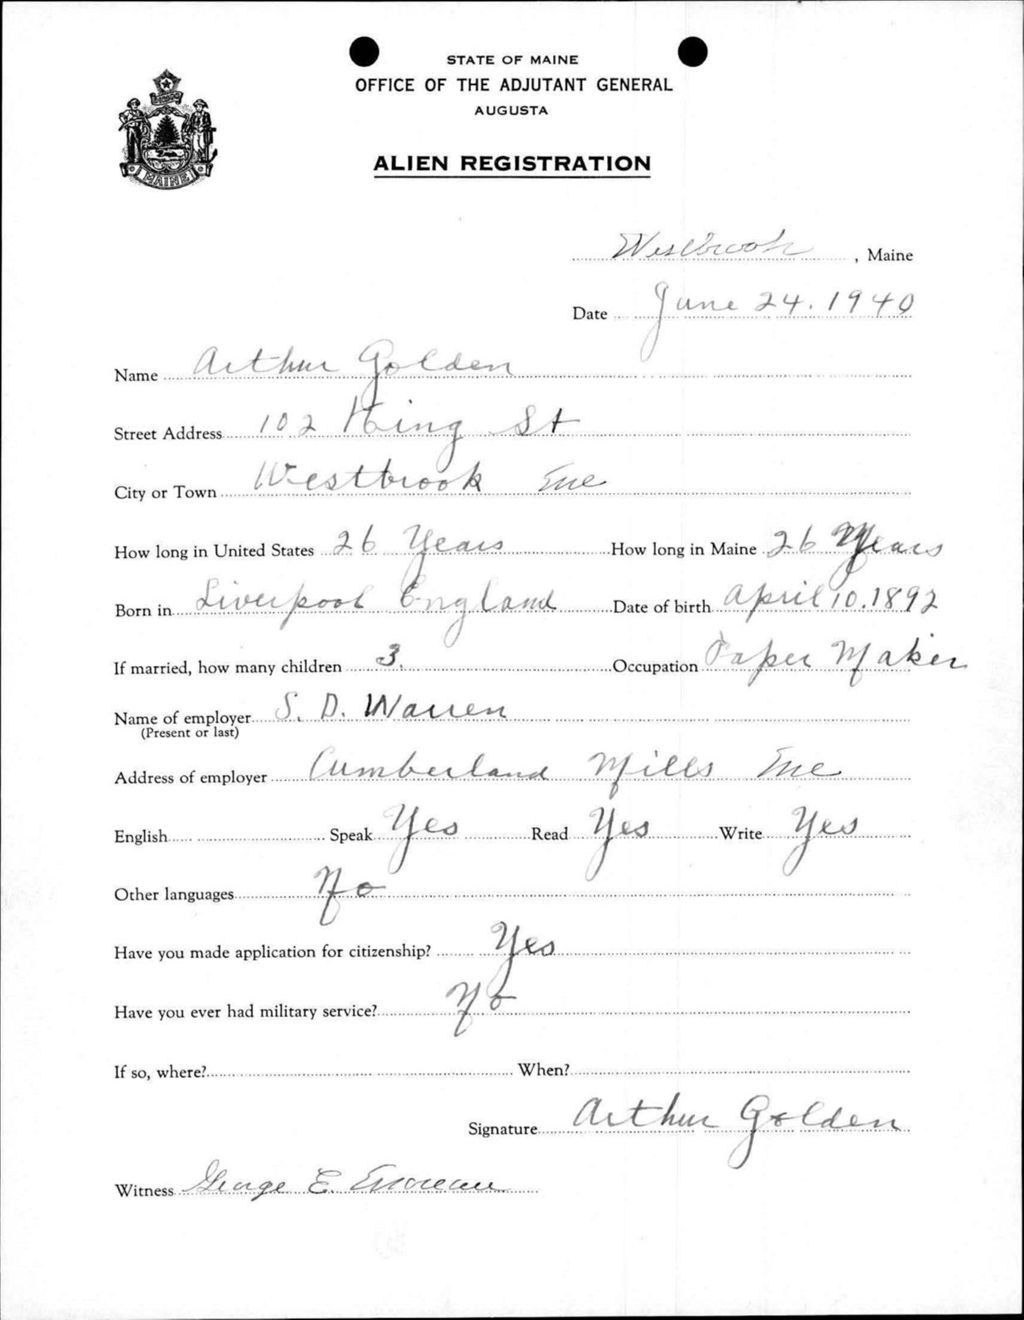 STATE OF MAINE
OFFICE OF THE ADJUTANT GENERAL
AUGUSTA
ALIEN REGISTRATION
MAINE
Westbrook, Maine
Date June 24. 1940
Name Arthur Golden
Street Address 102 King St
City or Town Westbrook Me
How long in United States 26 Years How long in Maine 26 Years
Born in Liverpool England Date of birth April 10. 1892
If married, how many children 3. Occupation Paper Maker
Name of employer S. D. Warren
(Present or last)
Address of employer Cumberland Mills Me
English Speak Yes Read Yes Write Yes
Other languages No
Have you made application for citizenship? Yes
Have you ever had military service? No
If so, where? When?
Signature Arthur Golden
Witness George E. Moreau